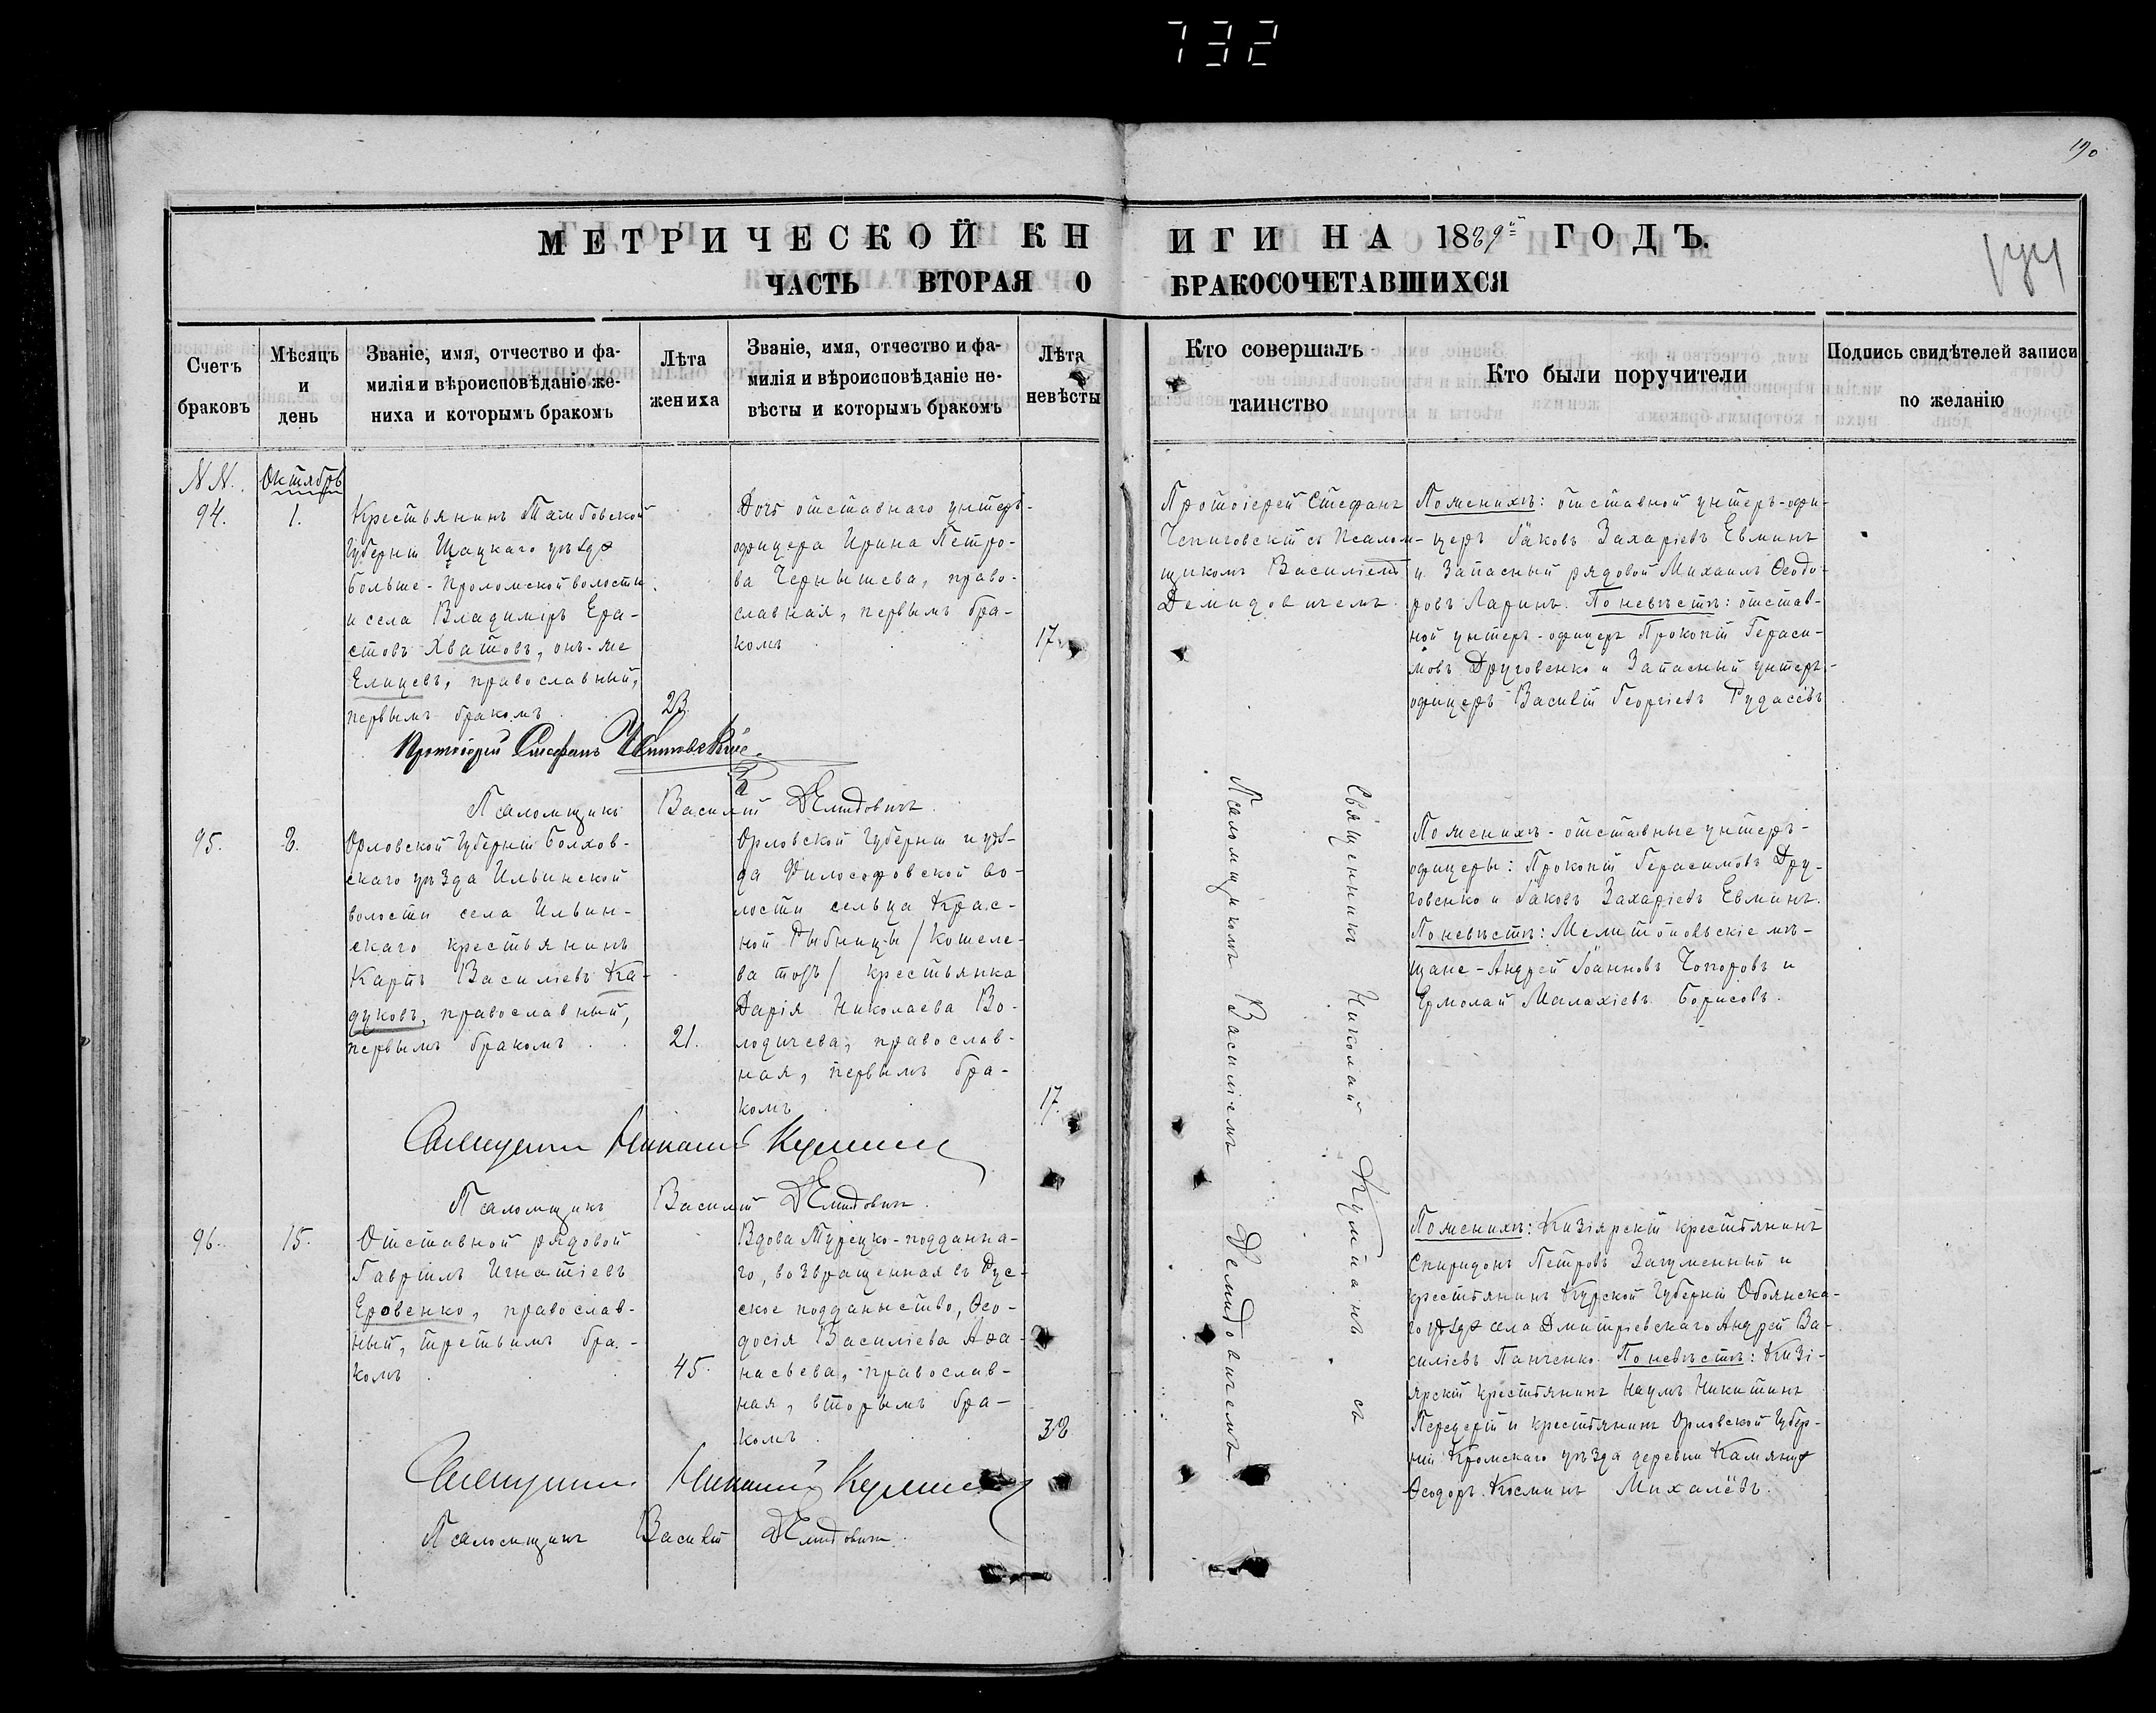 732
190
МЕТРИЧЕСКОЙ КН
ИГИ НА 1889й ГОДЪ.
ЧАСТЬ ВТОРАЯ О
БРАКОСОЧЕТАВШИХСЯ
Счетъ браковъ
Мѣсяцъ и день
Званіе, имя, отчество и фа-
милія и вѣроисповѣданіе же-
ниха и которымъ бракомъ
Лѣта жениха
Званіе, имя, отчество и фа-
милія и вѣроисповѣданіе не-
вѣсты и которымъ бракомъ
Лѣта невѣсты
Кто совершалъ
таинство
Кто были поручители
Подпись свидѣтелей записи
по желанію
NN.
Октябрь
94.
1.
Крестьянинъ Тамбовской
Губерніи Шацкаго уѣзда
Больше-Проломской волости
и села Владиміръ Ера-
стовъ Хватовъ, онъ-же
Елицевъ, православный,
первымъ бракомъ
23.
Дочь отставнаго унтеръ-
офицера Ирина Петро-
ва Чернышева, право-
славная, первымъ бра-
комъ
17.
Протоіерей Стефанъ
съ Псалом-
щикомъ Василіемъ
Демидовичемъ.
По женихѣ: отставной унтеръ-офи-
церъ Іаковъ Захаріевъ Евминъ
и Запасный рядовой Михаилъ Ѳеодо-
ровъ Ларинъ. По невѣстѣ: отстав-
ной унтеръ-офицеръ Прокопій Гераси-
мовъ Друговенко и Запасный унтеръ-
офицеръ Василій Георгіевъ Рудасёвъ
Протоіерей Стефанъ
Псаломщикъ Василій Демидовичъ.
95.
8.
Орловской Губерніи Болхов-
скаго уѣзда Ильинской
волости села Ильин-
скаго крестьянинъ
Карпъ Василіевъ Ка-
дуковъ, православный,
первымъ бракомъ
21.
Орловской Губерніи и уѣз-
да Философовской во-
лости сельца Крас-
ной Рыбницы /Кошеле-
ва тожъ/ крестьянка
Дарія Николаева Во-
лодичева, православ-
ная, первымъ бра-
комъ
17.
Священникъ Николай съ
Псаломщикомъ Василіемъ Демидовичемъ.
По женихѣ - отставные унтеръ-
офицеры: Прокопій Герасимовъ Дру-
говенко и Іаковъ Захаріевъ Евминъ.
По невѣстѣ: Мелитопольскіе мѣ-
щане - Андрей Іоанновъ Топоровъ и
Ермолай Малахіевъ Борисовъ.
Священникъ Николай
Псаломщикъ Василій Демидовичъ.
96.
15.
Отставной рядовой
Гавріилъ Игнатіевъ
Еровенко, православ-
ный, третьимъ бра-
комъ
45.
Вдова Турецко-подданна-
го, возвращенная въ Рус-
ское подданнство, Ѳео-
досія Василіева Аѳа-
насьева, православ-
ная, вторымъ бра-
комъ
38
По женихѣ: Кизіярскій крестьянинъ
Спиридонъ Петровъ Загуменный и
крестьянинъ Курской Губерніи Обоянска-
го уѣзда села Дмитріевскаго Андрей Ва-
силіевъ Панченко. По невѣстѣ: Кизі-
ярскій крестьянинъ Наумъ Никитинъ
и крестьянинъ Орловской Губер-
ніи Кромскаго уѣзда деревни
Ѳеодоръ Косминъ Михалёвъ.
Священникъ Николай
Псаломщикъ Василій Демидовичъ.